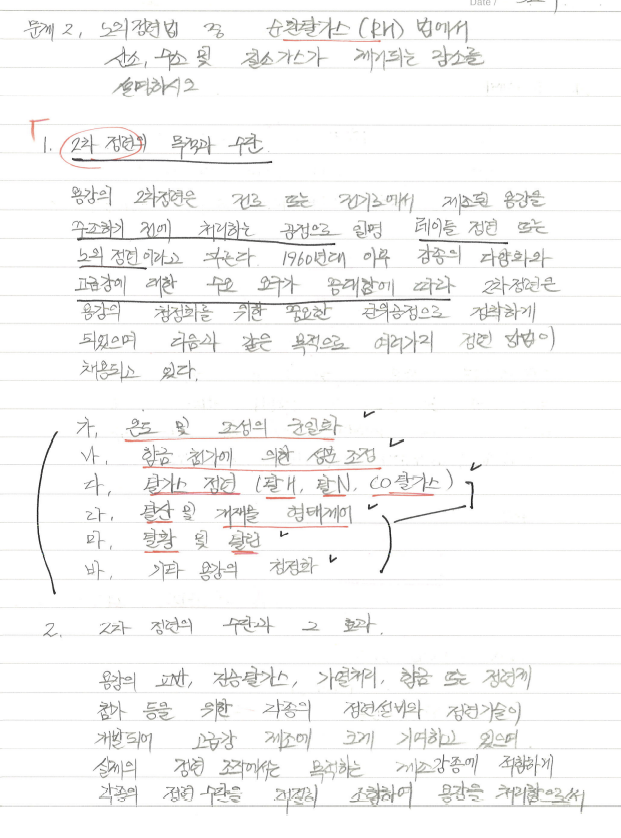 Date /
문제 2, 노외정련법 중 순환탈가스 (RH) 법에서
산소, 수소 및 질소가스가 제거되는 장소를
설명하시오
1. 2차 정련의 목적과 수단
용강의 2차정련은 전로 또는 전기로에서 제조된 용강을
주조하기 전에 처리하는 공정으로 일명 레이들 정련 또는
노외 정련이라고 부른다. 1960년대 이후 강종의 다양화와
고급강에 대한 수요 요구가 증대함에 따라 2차정련은
용강의 청정화를 위한 중요한 단위공정으로 정착하게
되었으며 다음과 같은 목적으로 여러가지 정련 방법이
채용되고 있다.
가, 온도 및 조성의 균일화
나, 합금 첨가에 의한 성분 조정
다, 탈가스 정련 (탈H, 탈N, CO탈가스)
라, 탈산 및 개재물 형태제어
마, 탈황 및 탈린
바, 기타 용강의 청정화
2. 2차 정련의 수단과 그 효과.
용강의 교반, 진공탈가스, 가열처리, 합금 또는 정련제
첨가 등을 위한 각종의 정련설비와 정련기술이
개발되어 고급강 제조에 크게 기여하고 있으며
실제의 정련 조작에서는 목적하는 제조강종에 적합하게
각종의 정련 수단을 적절히 조합하여 용강을 처리함으로써